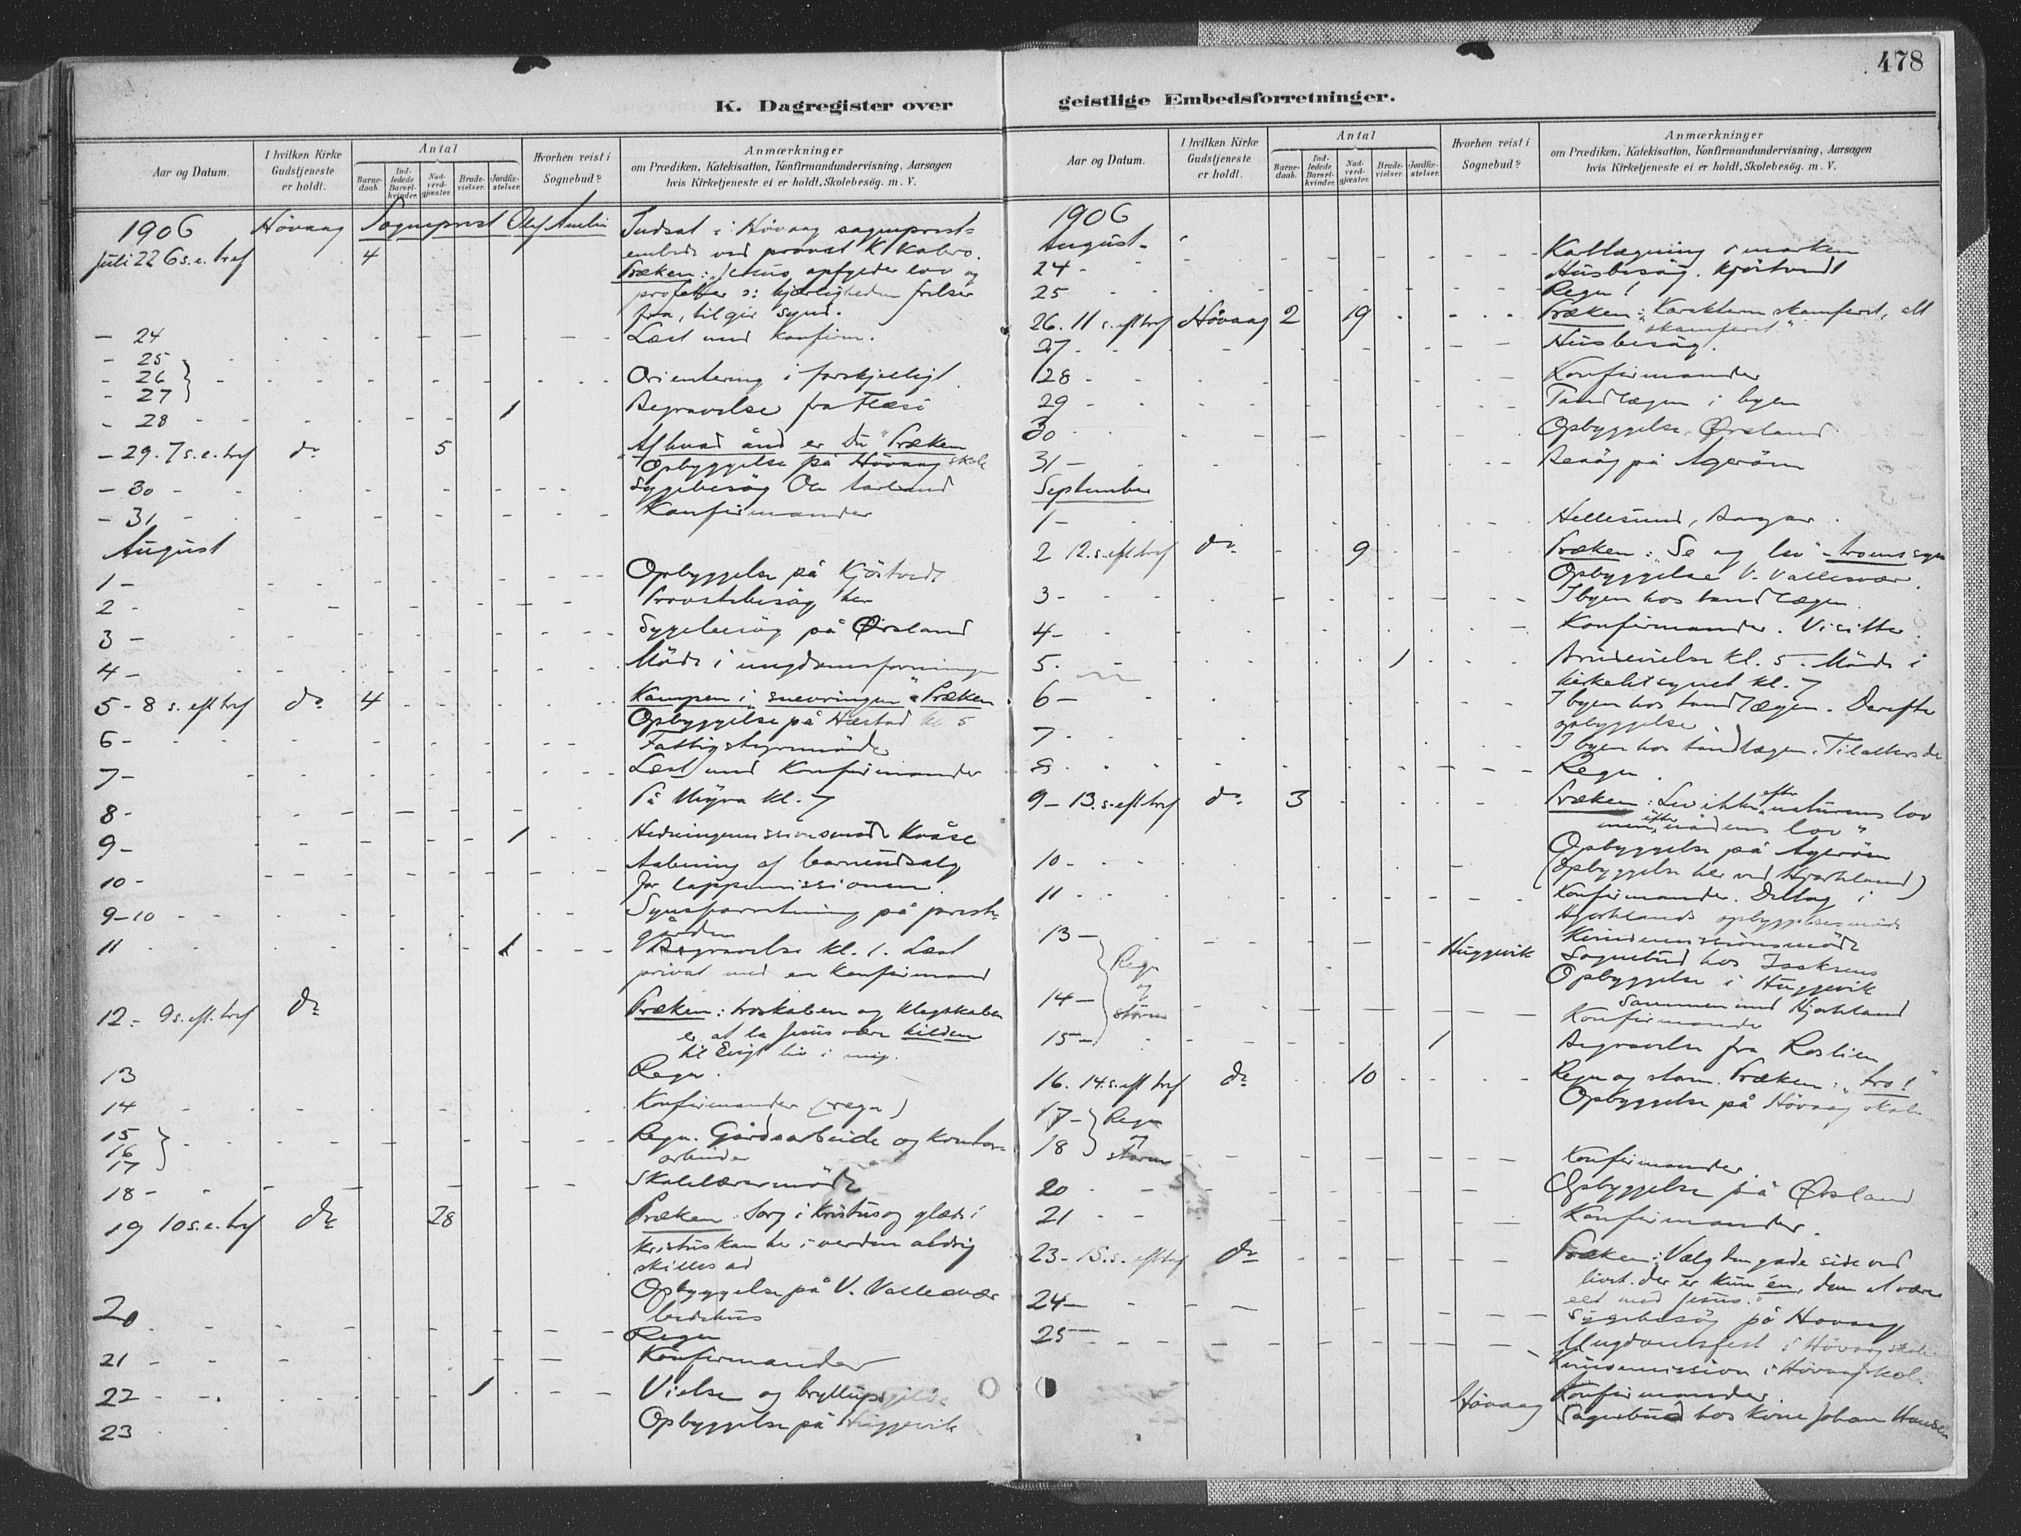 478
K. Dagregister over
Aar og Datum.
I hvilken Kirke Gudstjeneste er holdt.
Antal
Barnedaab.
Indledede Barselkvinder.
Nadverdgjæster.
Brudevielser.
Jordfæstelser.
Hvorhen reist i Sognebud?
Anmærkninger
om Prædiken, Katekisation, Konfirmandundervisning, Aarsagen
hvis Kirketjeneste ei er holdt, Skolebesøg. m. V.
1906 Høvaag Sogneprest Olaf Indsat i Høvaag sogneprest-
embede ved provst K. Kalvo.
Juli 22 6 s. e. tref 4 Præken: Jesus opfylder lov og
profeter o: kjærligheden frelser
fra, tilgir synd.
- 24 Læst med konfirm.
- 25
- 26
- 27 Orientering i forskjelligt
- 28 1 Begravelse fra
- 29. 7 s. e. tref do 5 "Af hvad ånd er Du" Præken
Opbyggelse på Høvaag skole
- 30 Sygebesøg
- 31 Konfirmander
August
1 - Opbyggelse på Kjöstvedt
2 - Provstebesög her
3 - Sygebesög på Ørsland
4 - Möde i ungdomsforeningen
5 - 8 s. eft tref do 4 Kampen i snevringen Præken
Opbyggelse på Hæstad kl 5
6 - Fattigstyremöde
7 - Læst med Konfirmander
8 - På Myra kl. 7
9 - 1 Hedningemissionsmöde Kvåse
10 - Aabning af barneudsalg
for lappemissionen.
9-10 Synsforretning på prest-
gården
11 1 Begravelse kl. 1. Læst
privat med en konfirmand
12 - 9 s. eft. tref do Præken: troskaben og klogskaben
er at la Jesus være kilden
til Evigt liv i mig.
13 Regn.
14 Konfirmander (regn)
15
16
17 Regn. Gårdsarbeide og kontor-
arbeide
18 - Skolelærermöde
19 10 s. e. tref do 28 Præken: Sorg i Kristus og glæde i
Kristus kan her i verden aldrig
skilles ad
Opbyggelse på V. Vallesvær
bedehus
20 Regn
21 Konfirmander
22 1 Vielse og bryllups
23 Opbyggelse på Huggevik
geistlige Embedsforretninger.
Aar og Datum.
I hvilken Kirke Gudstjeneste er holdt.
Antal
Barnedaab.
Indledede Barselkvinder.
Nadverdgjæster.
Brudevielser.
Jordfæstelser.
Hvorhen reist i Sognebud?
Anmærkninger
om Prædiken, Katekisation, Konfirmandundervisning, Aarsagen
hvis Kirketjeneste ei er holdt, Skolebesøg. m. V.
1906
August - Kartlægning i marken
24 - Husbesög. Kjöstvedt
25 Regn!
26. 11 s. eft tref Høvaag 2 19 Præken: "Karakteren skamferet, alt
skamferet"
27 Husbesög.
28 Konfirmander
29 Tandlægen i byen
30 Opbyggelse, Ørsland
31 - Besög på Ageröen
September
1 - Hellesund,
2 12. s. eft tref do 9 Præken: "Se og lev" - troens syn
Opbyggelse V. Vallesvær.
3 - I byen hos tandlægen.
4 - Konfirmander. Visitter.
5. 1 Brudevielse kl. 5. Möde i
kirketilsynet kl. 7
6 - I byen hos tandlægen. Derefter
opbyggelse
7 - I byen hos tandlægen.
8 Regn.
9 - 13. s. eft tref do 3 Præken: Lev ikke efter "naturens lov
men efter nådens lov"
10 - Opbyggelse på Ageröen
(Opbyggelse her ved Hjorteland)
11 Konfirmander. Deltog i
Hjortelands opbyggelsesmöde
13 - Kvindemissionsmöde
Regn og storm Huggevik Sognebud hos Isaksens
Opbyggelse i Huggevik
sammen med Hjorteland
14 - Konfirmander
15 - 1 Begravelse fra Roslien
16. 14. s. eft tref do 10 Regn og storm. Præken: "tro!"
Opbyggelse på Høvaag skole
17 - Regn
18 storm
Konfirmander.
20 Opbyggelse på Ørsland
21 Konfirmander.
23 - 15. s. eft tref do Præken: Vælg den gode side ved
livet. der er kun én, den at være
ett med Jesus."
24 - Sygebesög på Hovaag
25 - Ungdomsfest i Høvaag skole
Kinesermission i Høvaag skol.
Konfirmander.
Høvaag Sognebud hos kone Johan Hansen